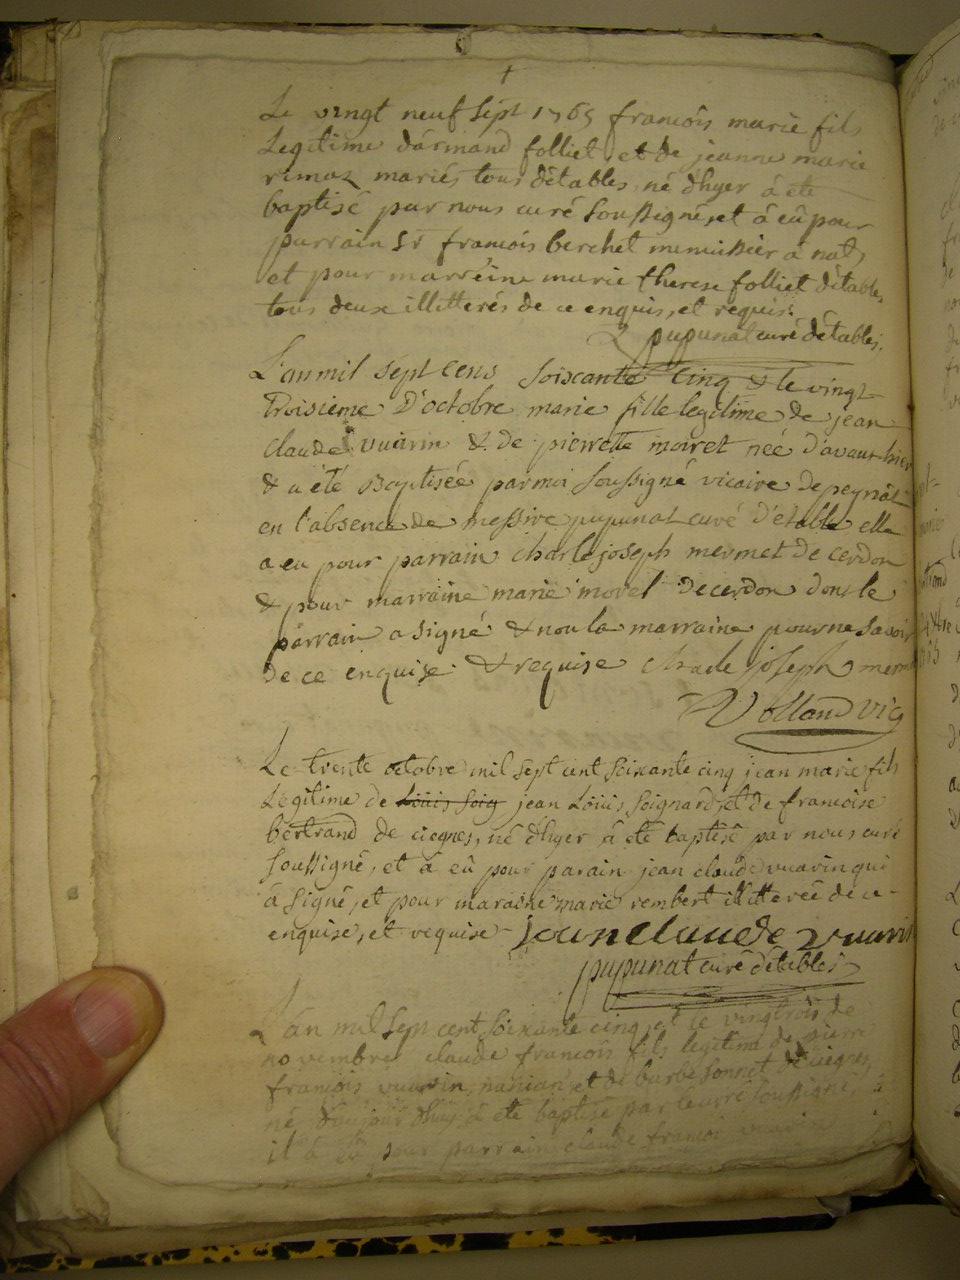 Le vingt neuf sept 1765 francois marie fils
Legitime d'armand folliet, et de jeanne marie
rimaz mariés tous d'étables, né d'hyer à été
baptisé par nous curé soussigné, et à eû pour
parrain Sr francois berchet menuisier à
et pour marreine marie therese folliet d'étables,
tous deux illitterés de ce enquis, et requis.
pupunat curé d'étables.
L'an mil sept cens soixante cinq & le vingt
troisieme d'octobre marie fille legitime de jean
claude vuarin & de pierrette moiret neé d'avant hier
& a été Baptiseé par moi soussigné vicaire de peyriat
en l'absence de messire pupunat curé d'etable elle
a eu pour parrain charle joseph mermet de cerdon
& pour marraine marie morel de cerdon dont le
parrain a signé & non la marraine pour ne savoir
de ce enquise & requise charle joseph merm
Volland vic
Le trente octobre mil sept cent soixante cinq jean marie fils
Legitime de Loüis Soig jean Loüis Soignard, et de francoise
bertrand de ciegnes, né d'hyer à été baptisé par nous curé
soussigné, et à eû pour parain jean claude vuarin qui
à signé, et pour maraine marie rembert illitereé de ce
enquise, et requise jean claude vuarin
pupunat curé d'étables
L'an mil sept cent soixante cinq, et le vingt trois de
novembre claude francois fils legitime de pierre
françois vuarin, et de barbe bonnet de ciegnes,
né d'aujourd'huy à été baptisé par le curé soussigné,
il à eû pour parrain claude francoi vuarin